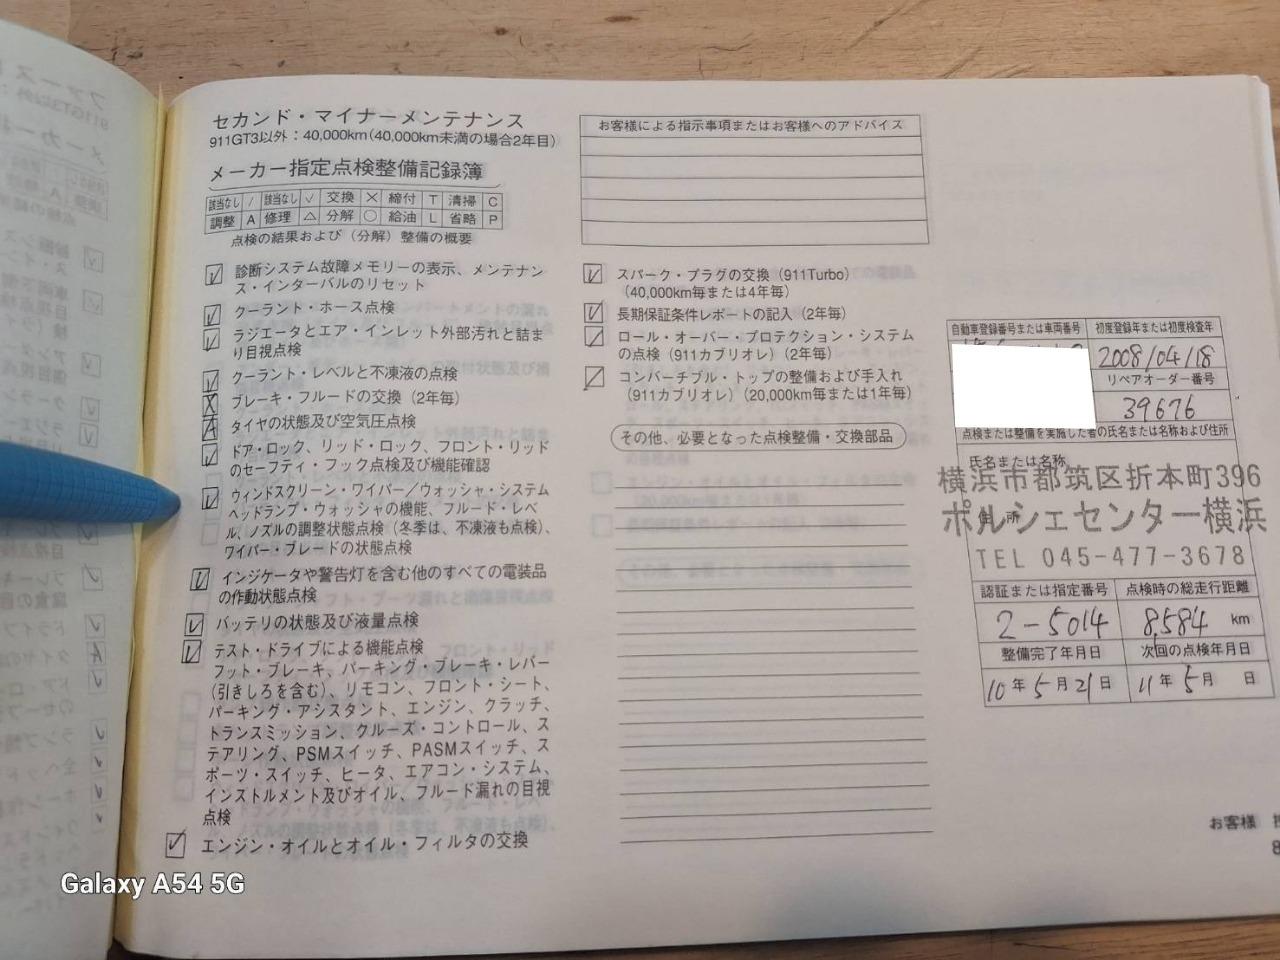 セカンド・マイナーメンテナンス
911GT3以外：40,000km(40,000km未満の場合2年目)
メーカー指定点検整備記録簿
該当なし / 該当なし √ 交換 × 締付 T 清掃 C
調整 A 修理 △ 分解 ○ 給油 L 省略 P
点検の結果および（分解）整備の概要
診断システム故障メモリーの表示、メンテナン
ス・インターバルのリセット
クーラント・ホース点検
ラジエータとエア・インレット外部汚れと詰ま
り目視点検
クーラント・レベルと不凍液の点検
ブレーキ・フルードの交換（2年毎）
タイヤの状態及び空気圧点検
ドア・ロック、リッド・ロック、フロント・リッド
のセーフティ・フック点検及び機能確認
ウィンドスクリーン・ワイパー／ウォッシャ・システム
ヘッドランプ・ウォッシャの機能、フルード・レベ
ル、ノズルの調整状態点検（冬季は、不凍液も点検）、
ワイパー・ブレードの状態点検
インジケータや警告灯を含む他のすべての電装品
の作動状態点検
バッテリの状態及び液量点検
テスト・ドライブによる機能点検
フット・ブレーキ、パーキング・ブレーキ・レバー
（引きしろを含む）、リモコン、フロント・シート、
パーキング・アシスタント、エンジン、クラッチ、
トランスミッション、クルーズ・コントロール、ス
テアリング、PSMスイッチ、PASMスイッチ、ス
ポーツ・スイッチ、ヒータ、エアコン・システム、
インストルメント及びオイル、フルード漏れの目視
点検
エンジン・オイルとオイル・フィルタの交換
お客様による指示事項またはお客様へのアドバイス
スパーク・プラグの交換（911Turbo）
（40,000km毎または4年毎）
長期保証条件レポートの記入（2年毎）
ロール・オーバー・プロテクション・システム
の点検（911カブリオレ）（2年毎）
コンバーチブル・トップの整備および手入れ
（911カブリオレ）（20,000km毎または1年毎）
その他、必要となった点検整備・交換部品
自動車登録番号または車両番号 初度登録年または初度検査年
2008/04/18
リペアオーダー番号
39676
点検または整備を実施した者の氏名または名称および住所
氏名または名称
横浜市都筑区折本町396
住 所
ポルシェセンター横浜
TEL 045-477-3678
認証または指定番号 点検時の総走行距離
2-5014 8,584 km
整備完了年月日 次回の点検年月日
10年5月21日 11年5月 日
お客様
8
Galaxy A54 5G